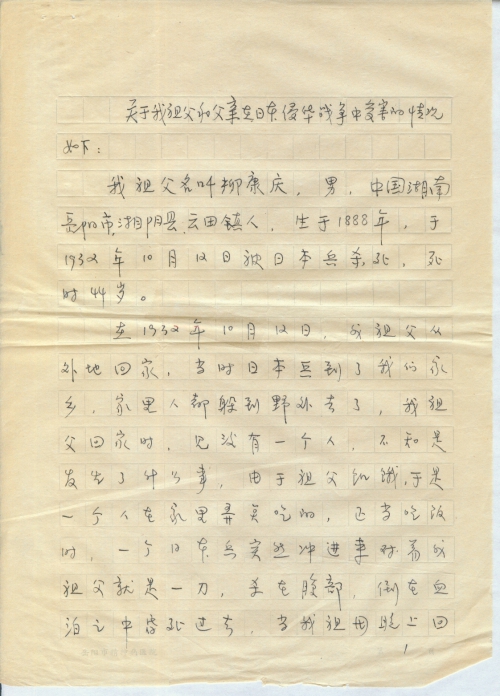 关于我祖父和父亲在日本侵华战争中受害的情况
如下：
我祖父名叫柳康庆，男，中国湖南
岳阳市湘阴县云田镇人，生于1888年，于
1932年10月12日被日本兵杀死，死
时44岁。
在1932年10月12日，我祖父从
外地回家，当时日本兵到了我们家
乡，家里人都躲到野外去了，我祖
父回家时，见没有一个人，不知是
发生了什么事，由于祖父饥饿，于是
一个人在家里弄点吃的，正当吃饭
时，一个日本兵突然冲进来对着我
祖父就是一刀，杀在腹部，倒在血
泊之中昏死过去，当我祖母晚上回
1